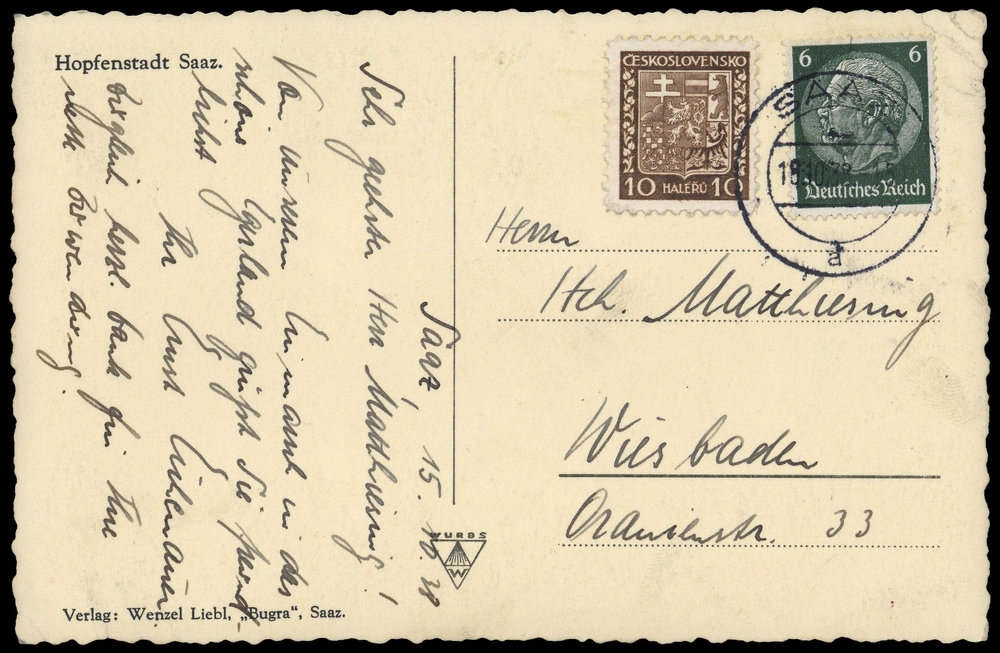 Hopfenstadt Saaz.
Saaz, 15. 10. 38
Sehr geehrter Herr Matthiesing!
Von unserem Einmarsch in das
schöne Egerland grüßt Sie
Ihr Ernst
herzl. Dank für Ihre
nette
Verlag: Wenzel Liebl, „Bugra“, Saaz.
WURBS
W
ČESKOSLOVENSKO
10 HALÉŘŮ 10
6 6
Deutsches Reich
SAAZ
a
Herrn
Hch. Matthiesing
Wiesbaden
Oranienstr. 33